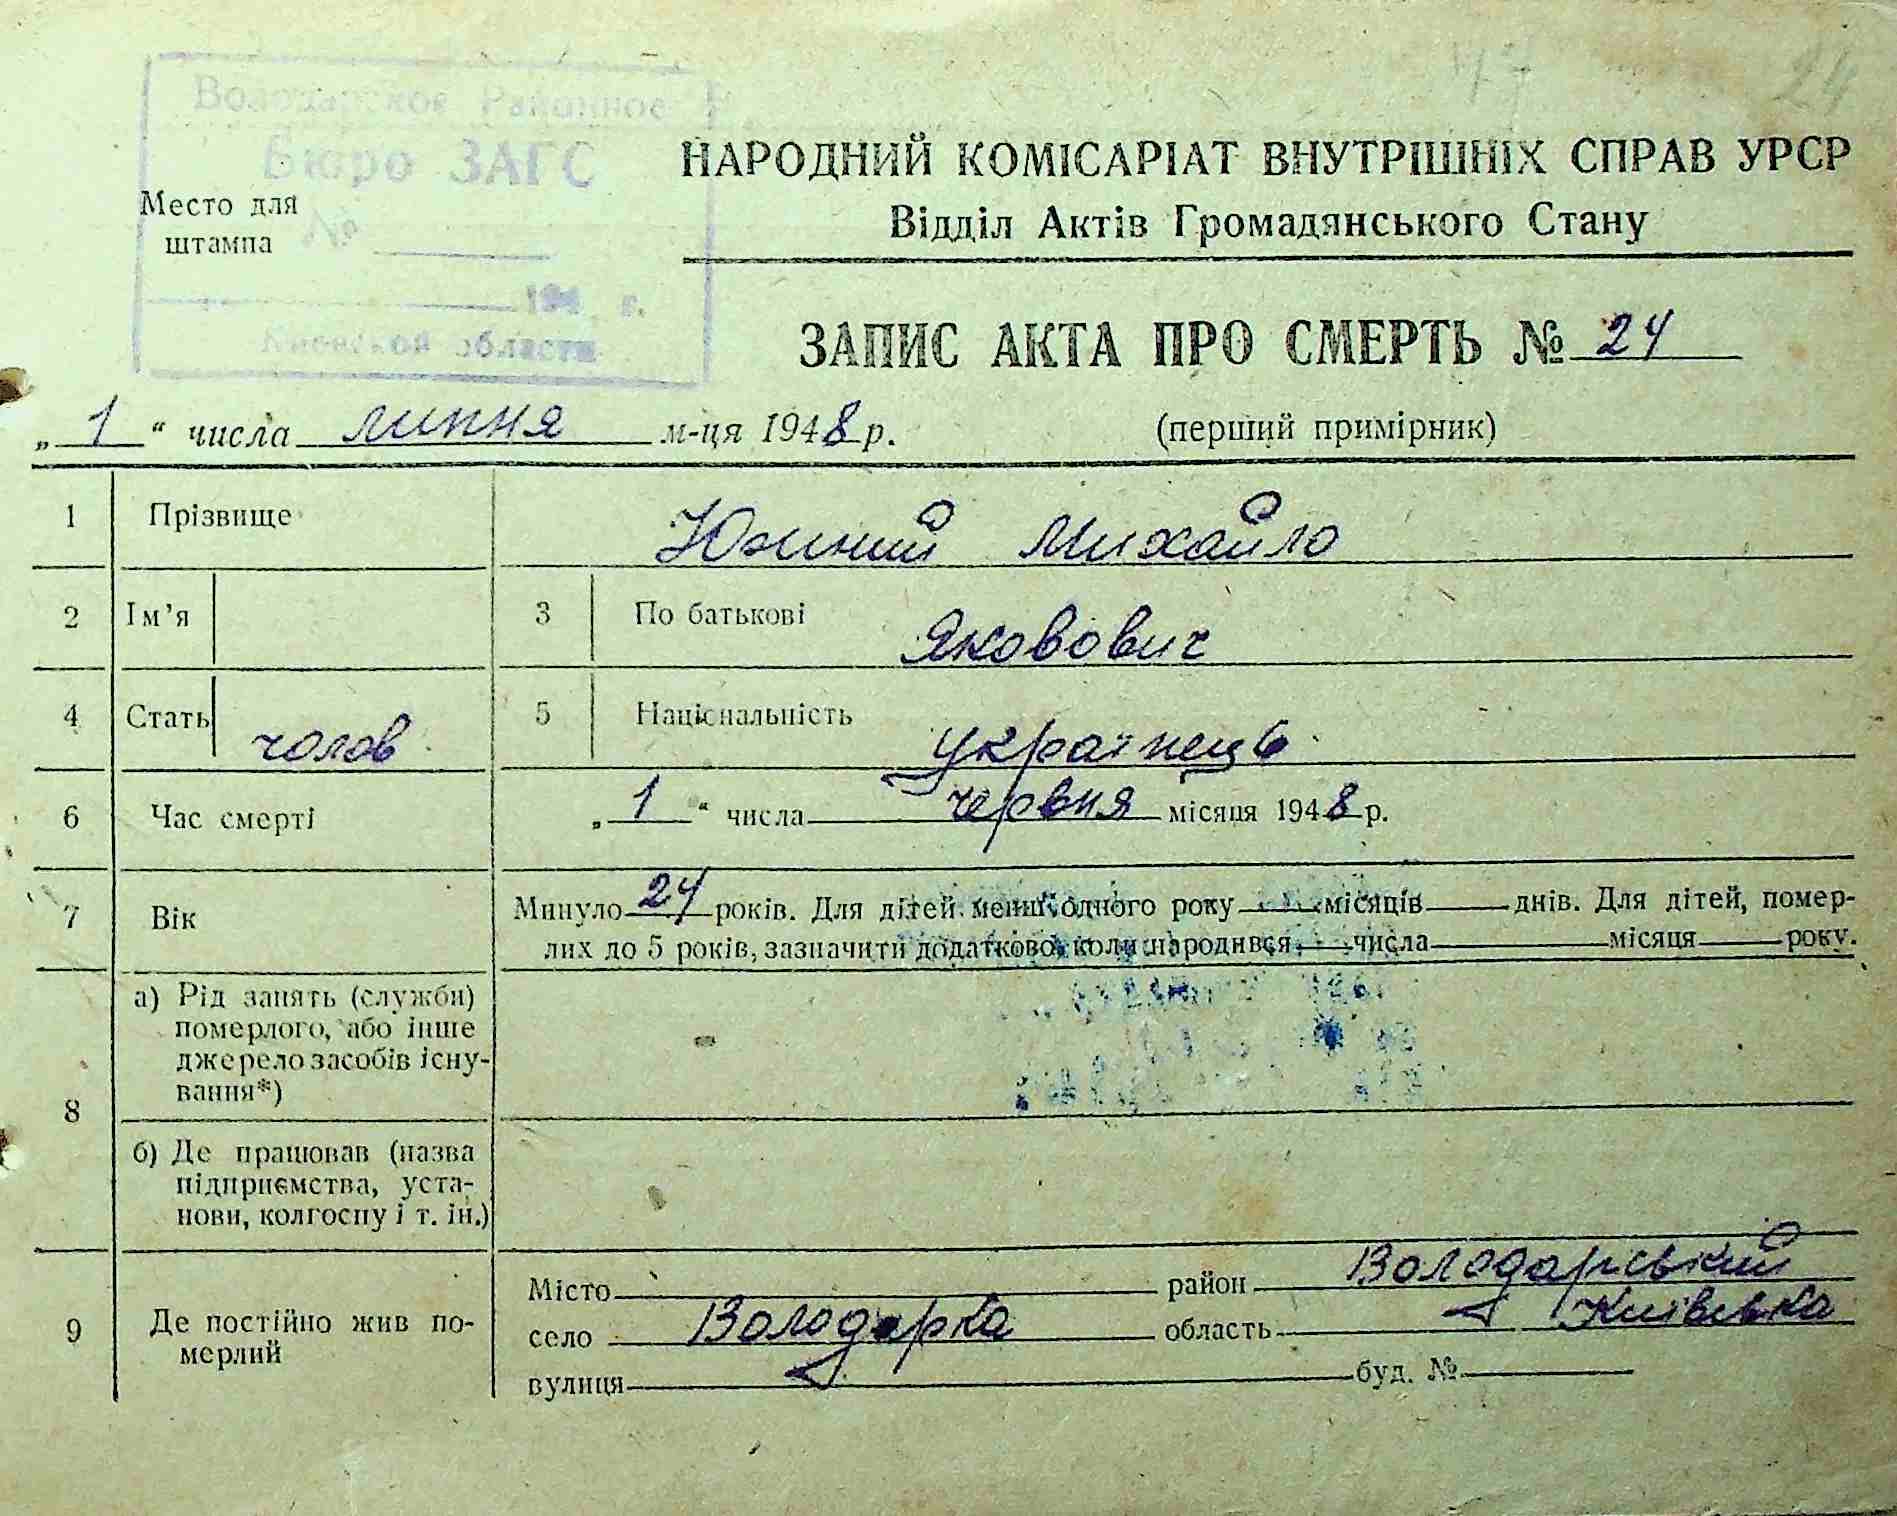 47 24
Володарское Районное
Бюро ЗАГС
НАРОДНИЙ КОМІСАРІАТ ВНУТРІШНІХ СПРАВ УРСР
Место для
штампа
№
Відділ Актів Громадянського Стану
194 г.
Киевской области
ЗАПИС АКТА ПРО СМЕРТЬ № 24
„ 1 “ числа липня м-ця 1948 р. (перший примірник)
1 Прізвище Южний Михайло
2 Ім’я 3 По батькові Яковович
4 Стать чолов 5 Національність українець
6 Час смерті „ 1 “ числа червня місяця 1948 р.
7 Вік Минуло 24 років. Для дітей менш одного року місяців днів. Для дітей, помер-
лих до 5 років, зазначити додатково, коли народився числа місяця року.
8 а) Рід занять (служби)
померлого, або інше
джерело засобів існу-
вання*)
б) Де працював (назва
підприємства, уста-
нови, колгоспу і т. ін.)
9 Де постійно жив по-
мерлий
Місто район Володарський
село Володарка область Київська
вулиця буд. №